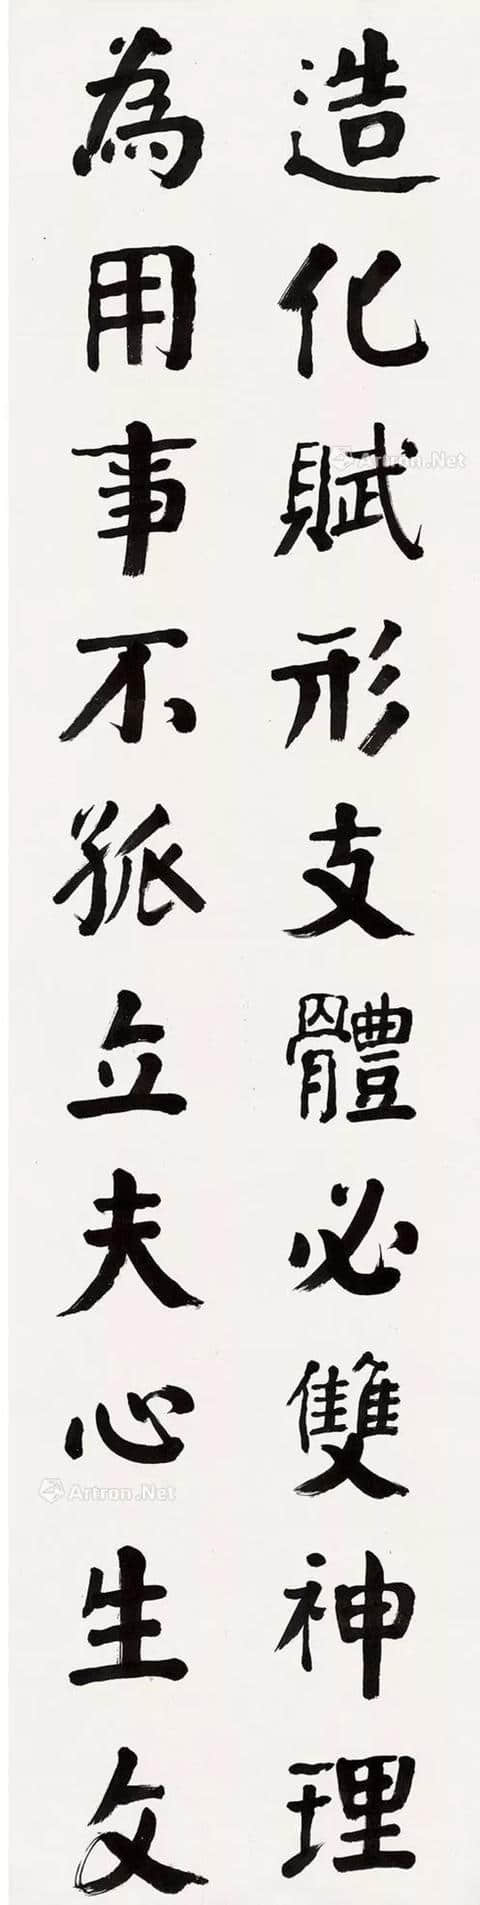 造化賦形支體必雙神理
為用事不孤立夫心生文
Artron.Net
Artron.Net